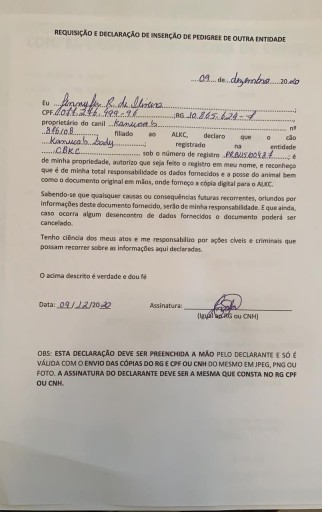 REQUISIÇÃO E DECLARAÇÃO DE INSERÇÃO DE PEDIGREE DE OUTRA ENTIDADE
....09.. de...dezembro......2020
Eu ..Jennyfer R. de Oliveira...;
CPF...;RG 10.865.624-7
proprietário do canil ..Kanucab... nº
BP6108..., filiado ao ALKC, declaro que o cão
..Kanucab Body..., registrado na entidade
....CBKC..., sob o número de registro ..; é
de minha propriedade, autorizo que seja feito o registro em meu nome, e reconheço
que é de minha total responsabilidade os dados fornecidos e a posse do animal bem
como o documento original em mãos, onde forneço a cópia digital para o ALKC.
Sabendo-se que quaisquer causas ou consequências futuras recorrentes, oriundos por
informações deste documento fornecido, serão de minha responsabilidade. E que ainda,
caso ocorra algum desencontro de dados fornecidos o documento poderá ser
cancelado.
Tenho ciência dos meus atos e me responsabilizo por ações cíveis e criminais que
possam recorrer sobre as informações aqui declaradas.
O acima descrito é verdade e dou fé
Data: 09/12/2020 Assinatura:
(Igual ao RG ou CNH)
OBS: ESTA DECLARAÇÃO DEVE SER PREENCHIDA A MÃO PELO DECLARANTE E SÓ É
VÁLIDA COM O ENVIO DAS CÓPIAS DO RG E CPF OU CNH DO MESMO EM JPEG, PNG OU
FOTO. A ASSINATURA DO DECLARANTE DEVE SER A MESMA QUE CONSTA NO RG CPF
OU CNH.